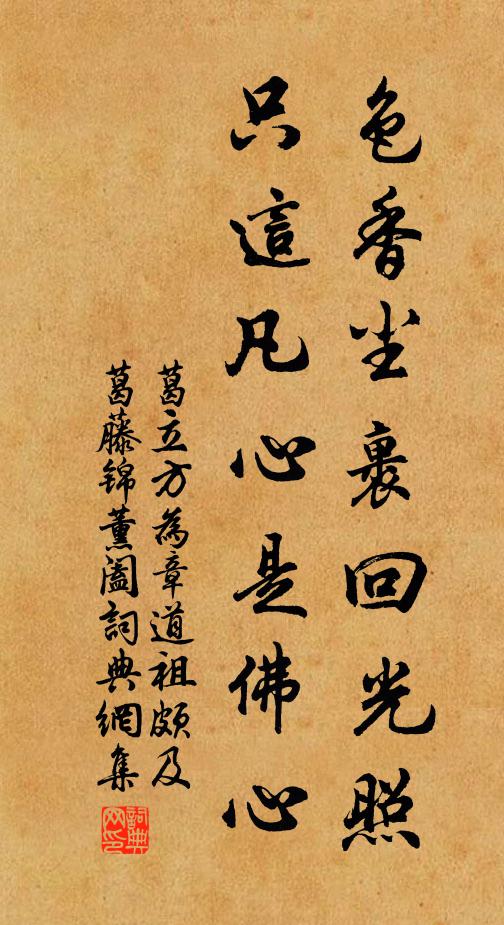 色香尘裏回光照
只這凡心是佛心
葛立方為章道祖頗及
葛藤錦薰闔詞典網集
詞典网印